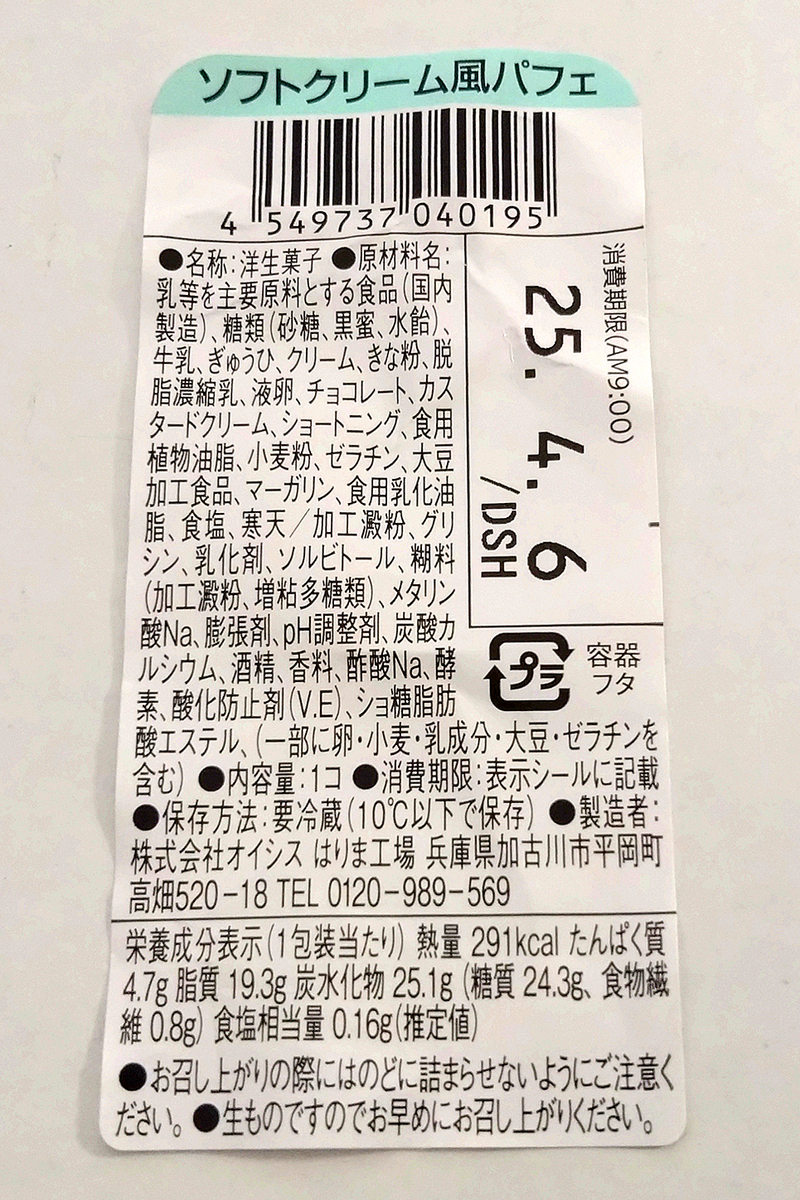 ソフトクリーム風パフェ
4 549737 040195
●名称:洋生菓子 ●原材料名:
乳等を主要原料とする食品(国内
製造)、糖類(砂糖、黒蜜、水飴)、
牛乳、ぎゅうひ、クリーム、きな粉、脱
脂濃縮乳、液卵、チョコレート、カス
タードクリーム、ショートニング、食用
植物油脂、小麦粉、ゼラチン、大豆
加工食品、マーガリン、食用乳化油
脂、食塩、寒天/加工澱粉、グリ
シン、乳化剤、ソルビトール、糊料
(加工澱粉、増粘多糖類)、メタリン
酸Na、膨張剤、pH調整剤、炭酸カ
ルシウム、酒精、香料、酢酸Na、酵
素、酸化防止剤(V.E)、ショ糖脂肪
酸エステル、(一部に卵・小麦・乳成分・大豆・ゼラチンを
含む) ●内容量:1コ ●消費期限:表示シールに記載
●保存方法:要冷蔵(10℃以下で保存) ●製造者:
株式会社オイシス はりま工場 兵庫県加古川市平岡町
高畑520-18 TEL 0120-989-569
消費期限(AM9:00)
25. 4. 6
/DSH
プラ
容器
フタ
栄養成分表示(1包装当たり) 熱量 291kcal たんぱく質
4.7g 脂質 19.3g 炭水化物 25.1g (糖質 24.3g、食物繊
維 0.8g) 食塩相当量 0.16g(推定値)
●お召し上がりの際にはのどに詰まらせないようにご注意く
ださい。●生ものですのでお早めにお召し上がりください。